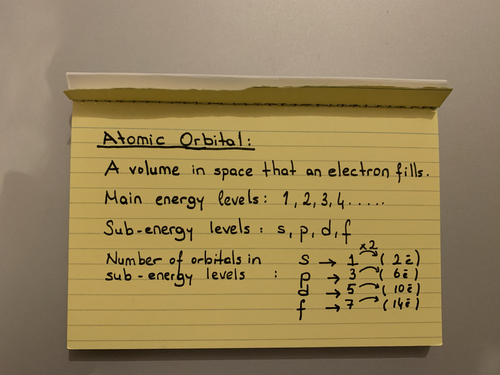 Atomic Orbital:
A volume in space that an electron fills.
Main energy levels: 1, 2, 3, 4.....
Sub-energy levels: s, p, d, f
Number of orbitals in sub-energy levels :
x2
s → 1 → (2ē)
p → 3 → (6ē)
d → 5 → (10ē)
f → 7 → (14ē)